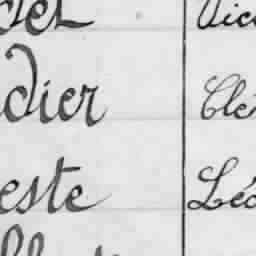 det Vic
dier Clé
este Léo